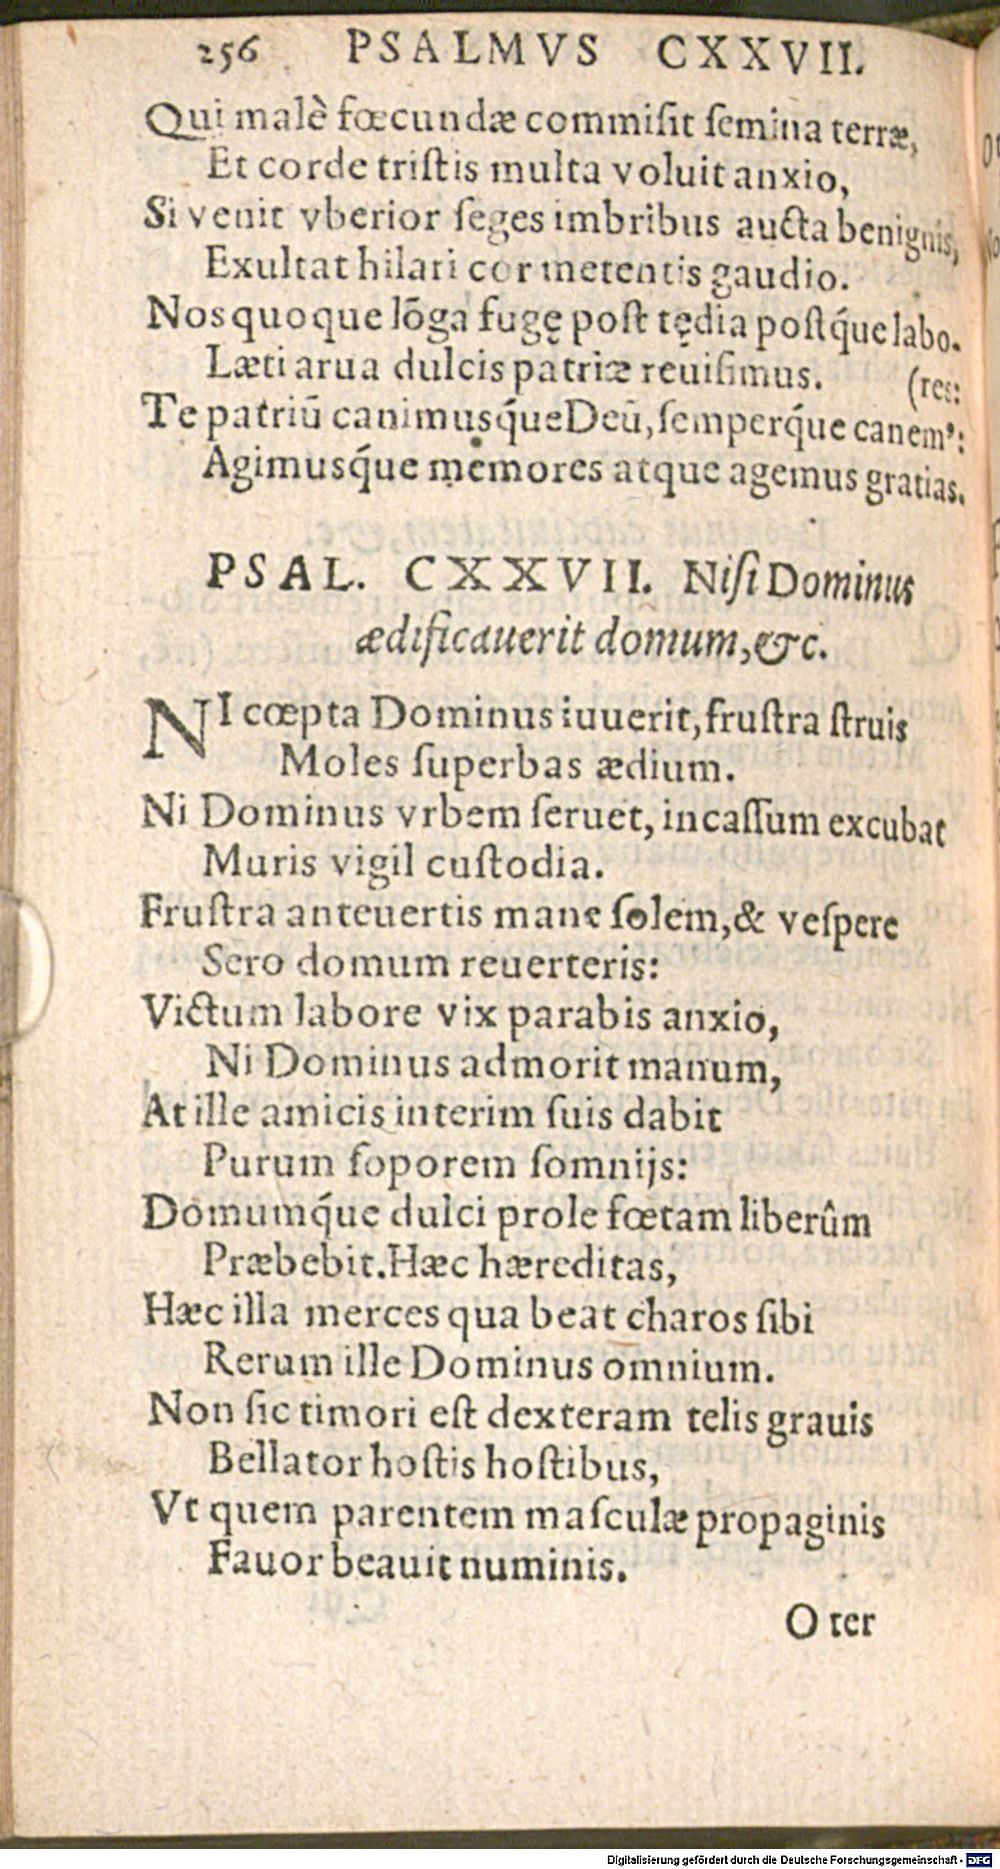 256 PSALMVS CXXVII.
Qui malè fœcundæ commiſit ſemina terræ,
Et corde triſtis multa voluit anxio,
Si venit vberior ſeges imbribus aucta benignis,
Exultat hilari cor metentis gaudio.
Nos quoque lõga fugę poſt tędia poſtq́ue labo.
Læti arua dulcis patriæ reuiſimus. (res:
Te patriũ canimusq́ue Deũ, ſemperq́ue canem':
Agimusq́ue memores atque agemus gratias.
PSAL. CXXVII. Niſi Dominus
ædificauerit domum, &c.
NI cœpta Dominus iuuerit, fruſtra ſtruis
Moles ſuperbas ædium.
Ni Dominus vrbem ſeruet, incaſſum excubat
Muris vigil cuſtodia.
Fruſtra anteuertis mane ſolem, & veſpere
Sero domum reuerteris:
Victum labore vix parabis anxio,
Ni Dominus admorit manum,
At ille amicis interim ſuis dabit
Purum ſoporem ſomnijs:
Domumq́ue dulci prole fœtam liberûm
Præbebit. Hæc hæreditas,
Hæc illa merces qua beat charos ſibi
Rerum ille Dominus omnium.
Non ſic timori eſt dexteram telis grauis
Bellator hoſtis hoſtibus,
Vt quem parentem maſculæ propaginis
Fauor beauit numinis.
O ter
Digitalisierung gefördert durch die Deutsche Forschungsgemeinschaft - DFG